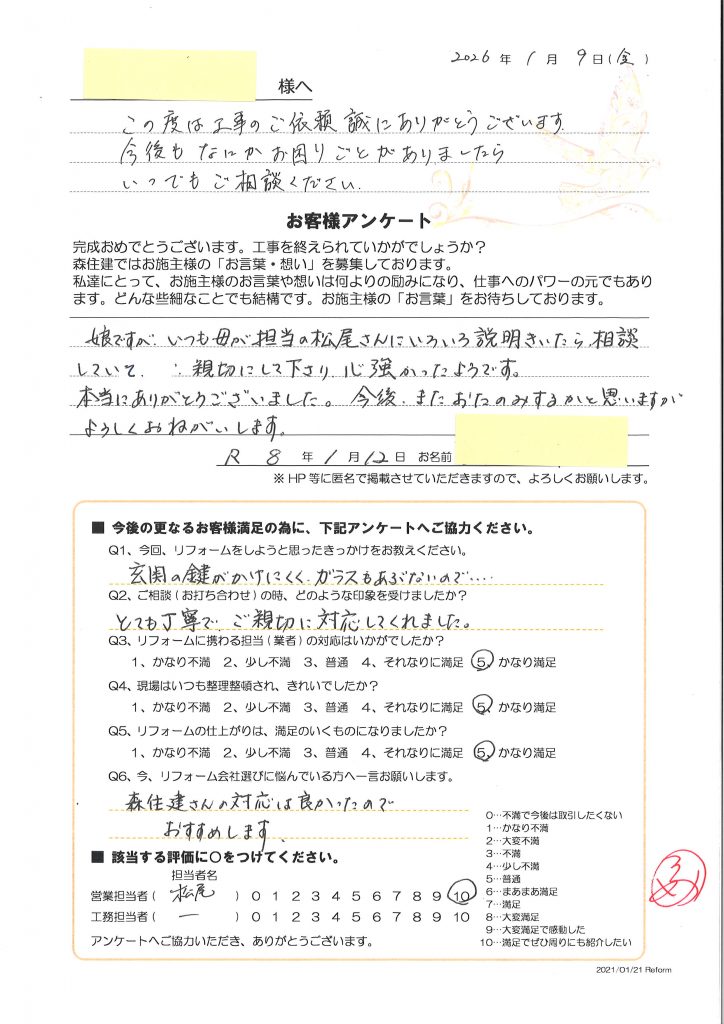 2026年 1月 9日(金)
様へ
この度は工事のご依頼誠にありがとうございます
今後もなにかお困りごとがありましたら
いつでもご相談ください。
お客様アンケート
完成おめでとうございます。工事を終えられていかがでしょうか？
森住建ではお施主様の「お言葉・想い」を募集しております。
私達にとって、お施主様のお言葉や想いは何よりの励みになり、仕事へのパワーの元でもあり
ます。どんな些細なことでも結構です。お施主様の「お言葉」をお待ちしております。
娘ですが、いつも母が担当の松尾さんにいろいろ説明きいたら、相談
していて、親切にして下さり、心強かったようです。
本当にありがとうございました。今後、またおたのみするかと思いますが
よろしくおねがいします。
R 8年 1月 12日 お名前
※HP等に匿名で掲載させていただきますので、よろしくお願いします。
■ 今後の更なるお客様満足の為に、下記アンケートへご協力ください。
Q1、今回、リフォームをしようと思ったきっかけをお教えください。
玄関の鍵がかけにくく、ガラスもあぶないので‥‥
Q2、ご相談(お打ち合わせ)の時、どのような印象を受けましたか？
とても丁寧で、ご親切に対応してくれました。
Q3、リフォームに携わる担当(業者)の対応はいかがでしたか？
1、かなり不満 2、少し不満 3、普通 4、それなりに満足 5、かなり満足
Q4、現場はいつも整理整頓され、きれいでしたか？
1、かなり不満 2、少し不満 3、普通 4、それなりに満足 5、かなり満足
Q5、リフォームの仕上がりは、満足のいくものになりましたか？
1、かなり不満 2、少し不満 3、普通 4、それなりに満足 5、かなり満足
Q6、今、リフォーム会社選びに悩んでいる方へ一言お願いします。
森住建さんの対応は良かったので
おすすめします。
■ 該当する評価に○をつけてください。
担当者名
営業担当者( 松尾 ) 0 1 2 3 4 5 6 7 8 9 10
工務担当者( ー ) 0 1 2 3 4 5 6 7 8 9 10
アンケートへご協力いただき、ありがとうございます。
0…不満で今後は取引したくない
1…かなり不満
2…大変不満
3…不満
4…少し不満
5…普通
6…まあまあ満足
7…満足
8…大変満足
9…大変満足で感動した
10…満足でぜひ周りにも紹介したい
2021/01/21 Reform